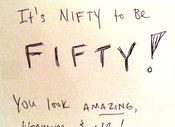 It's NIFTY to Be
FIFTY!
You look AMAZING,